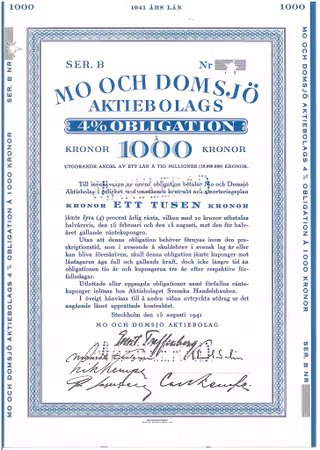 1000
1941 ÅRS LÅN
1000
SER. B
Nr
MO OCH DOMSJÖ
AKTIEBOLAGS
4% OBLIGATION
KRONOR 1000 KRONOR
UTGÖRANDE ANDEL AV ETT LÅN Å TIO MILLIONER (10.000.000) KRONOR.
Till innehavaren av denna obligation betalar Mo och Domsjö
Aktiebolag i enlighet med omstående kontrakt och amorteringsplan
KRONOR ETT TUSEN KRONOR
jämte fyra (4) procent årlig ränta, vilken med 20 kronor utbetalas
halvårsvis, den 15 februari och den 15 augusti, mot den för halv-
året gällande räntekupongen.
Utan att denna obligation behöver förnyas inom den pre-
skriptionstid, som i avseende å skuldebrev i svensk lag är eller
kan bliva föreskriven, skall denna obligation jämte kuponger mot
låntagaren äga full och gällande kraft, dock icke längre tid än
obligationen tio år och kupongerna tre år efter respektive för-
fallodagar.
Utlottade eller uppsagda obligationer samt förfallna ränte-
kuponger inlösas hos Aktiebolaget Svenska Handelsbanken.
I övrigt hänvisas till å andra sidan avtryckta utdrag ur det
angående lånet upprättade kontraktet.
Stockholm den 15 augusti 1941
MO OCH DOMSJÖ AKTIEBOLAG
MO OCH DOMSJÖ AKTIEBOLAGS 4% OBLIGATION Å 1000 KRONOR SER. B NR
MO OCH DOMSJÖ AKTIEBOLAGS 4% OBLIGATION Å 1000 KRONOR SER. B NR
1000
1000